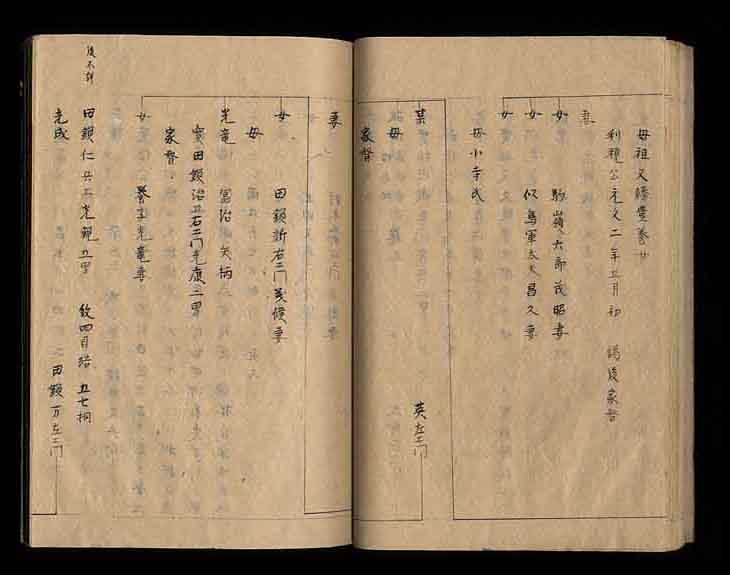 母祖父
利視公元文二年五月初 家督
妾
女 駒嶺六郎茂昭妻
女 似鳥軍太夫昌久妻
女
母小寺氏
某 英左エ門
母
家督
妻
女 田鎖新右エ門美俊妻
女
光竜 宮治 矢柄
実田鎖治五右エ門光康三男
家督
女 養子光竜妻
田鎖仁兵エ光親五男 紋四目結 五七桐
光成 田鎖万左エ門
後不詳